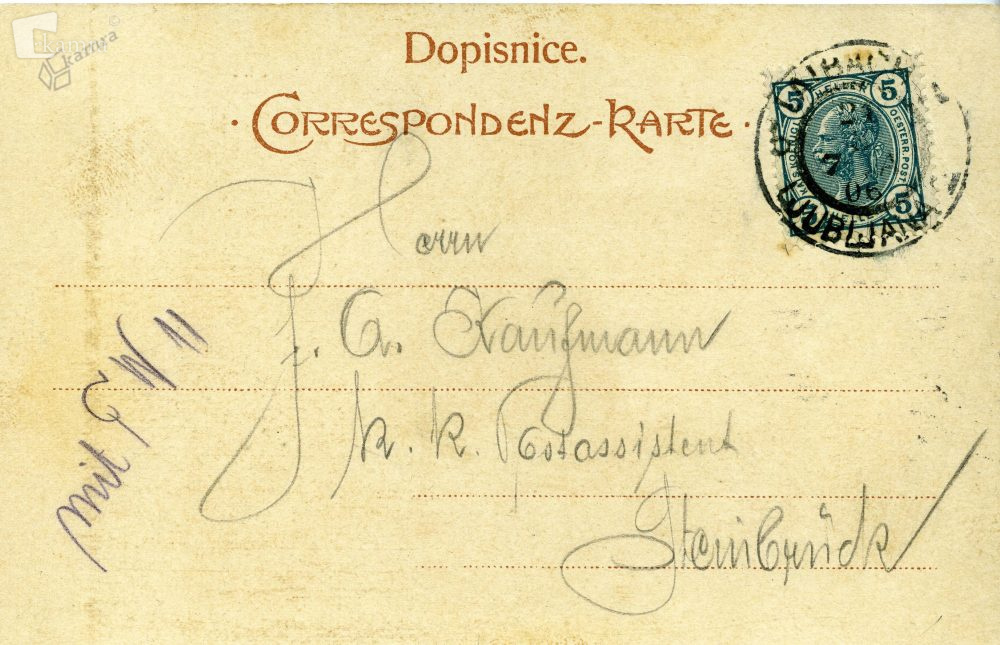 kamra
Dopisnice.
CORRESPONDENZ-KARTE
LAIBACH
LJUBLJANA
21
7
06
5 HELLER 5
OESTERR. POST
5
Herrn
J. A. Kaufmann
k. k. Postassistent
Steinbrück
mit